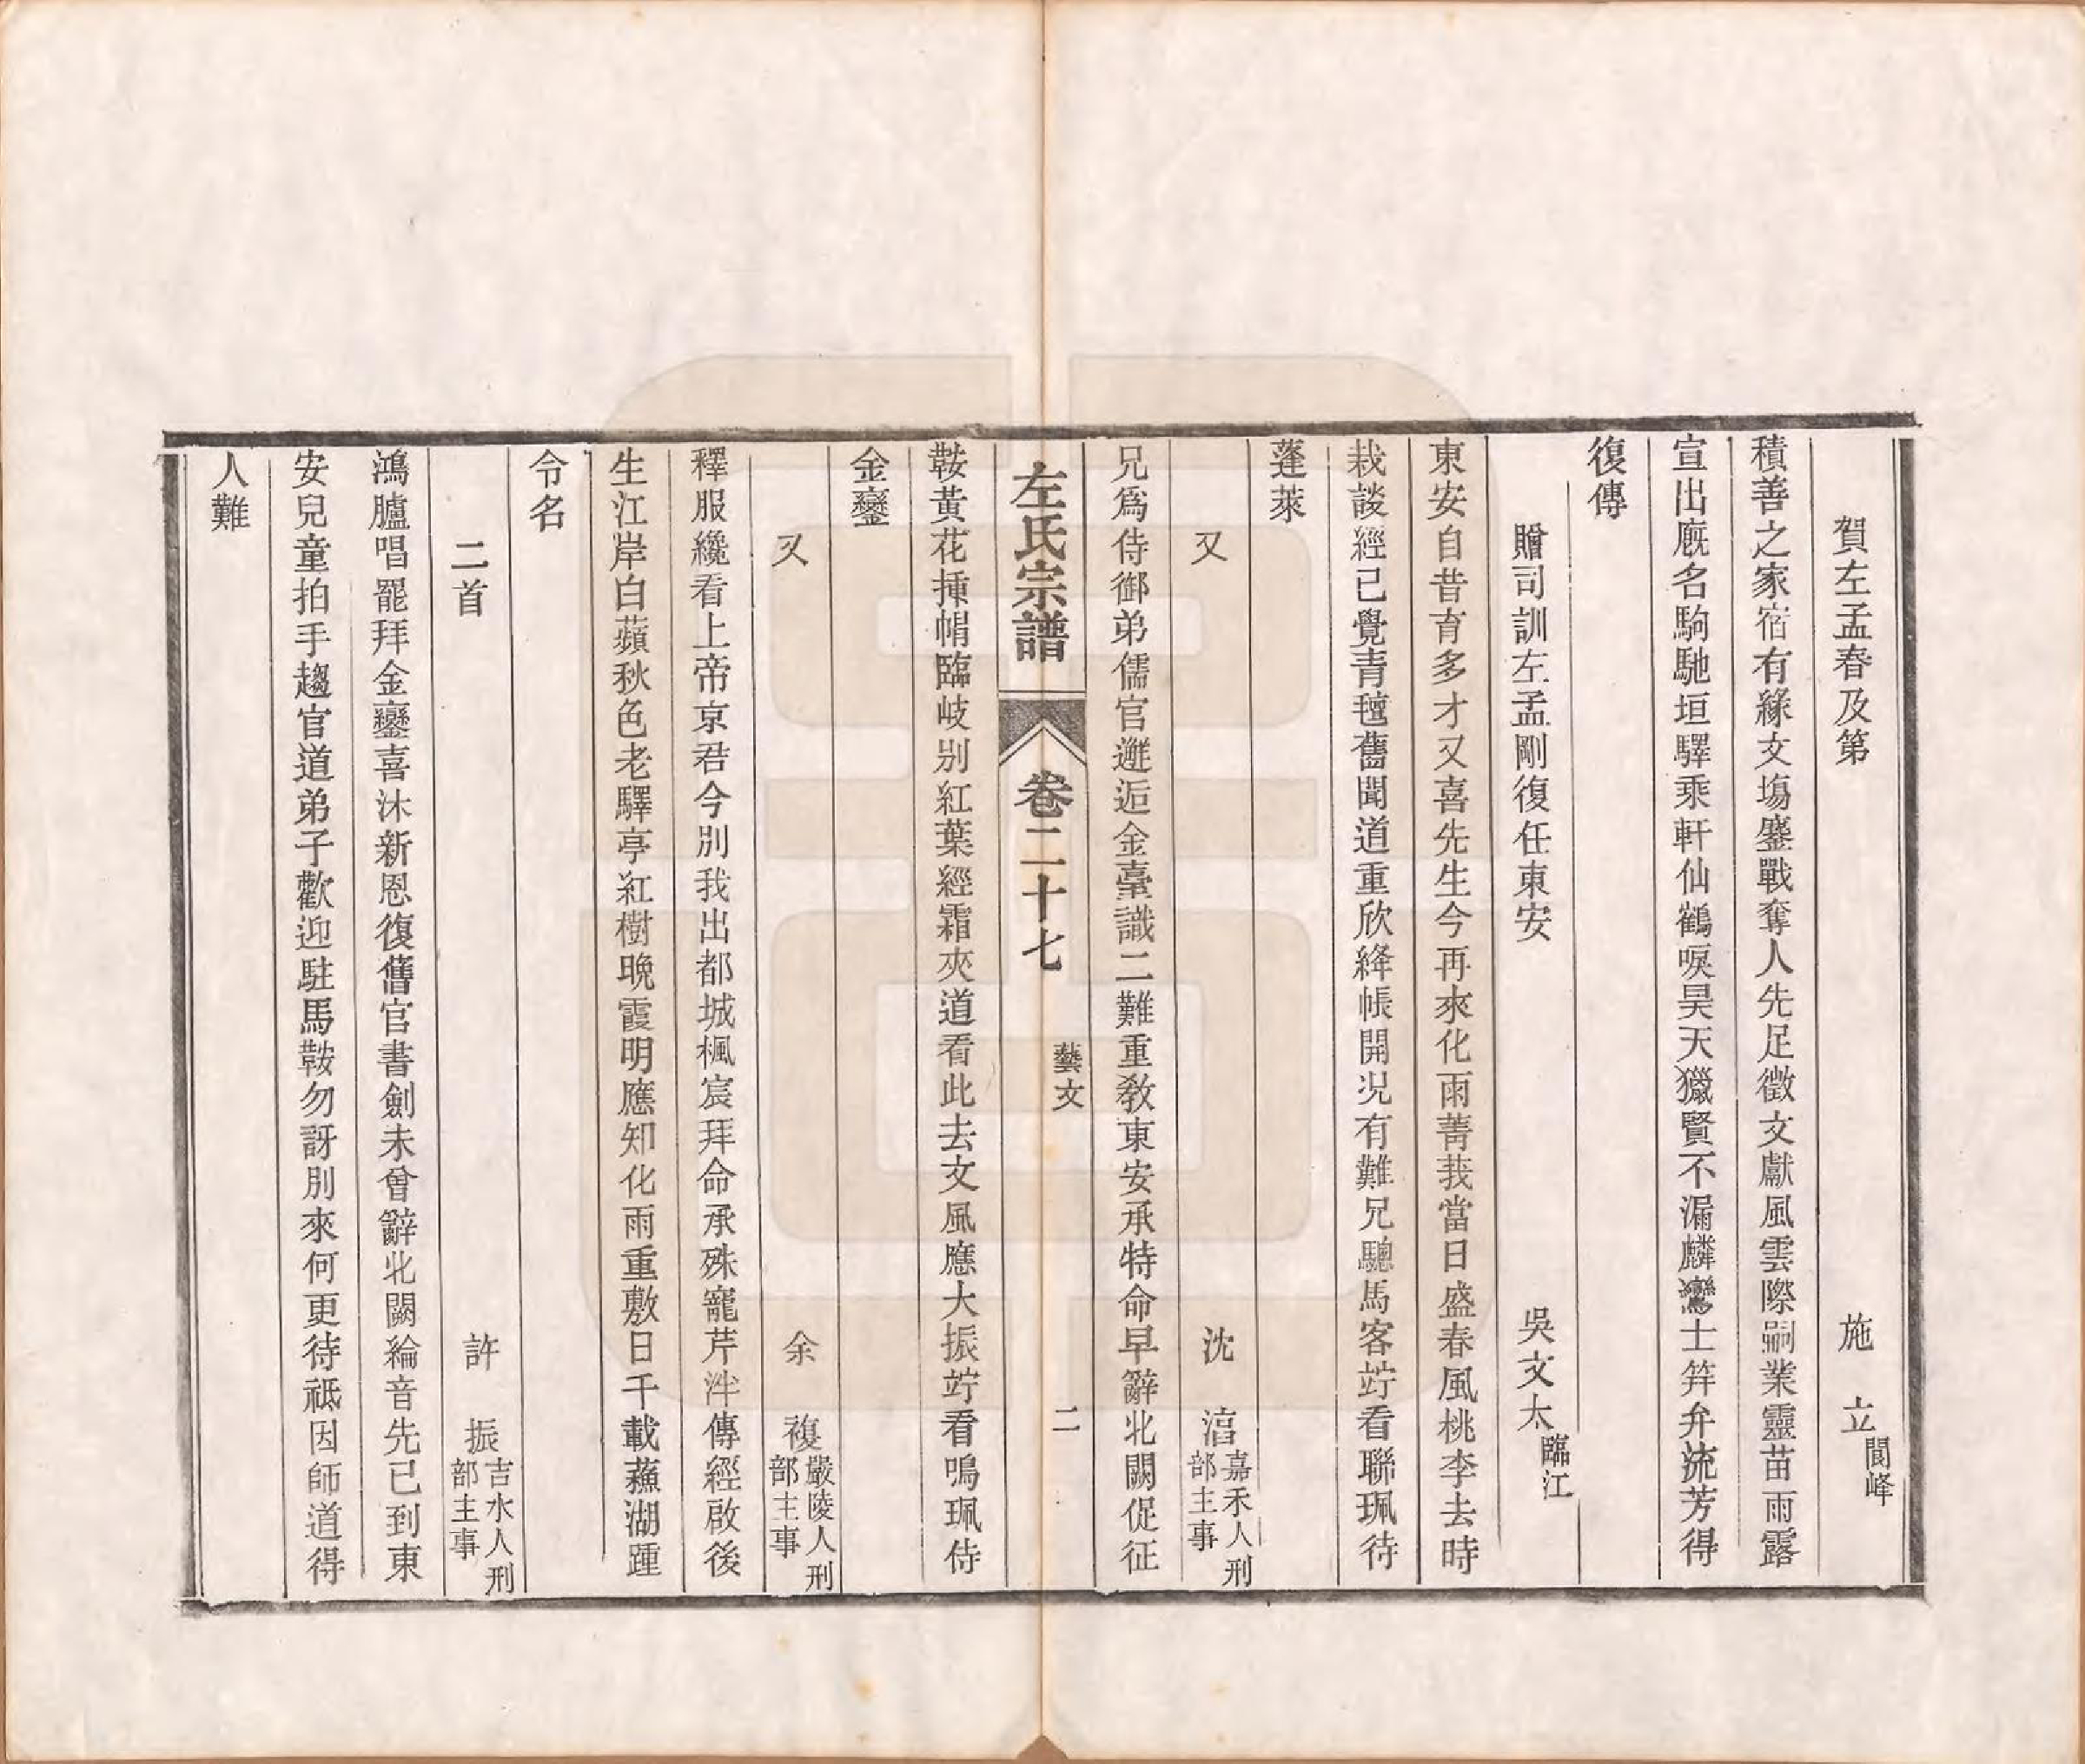 賀左孟春及第　施　立閬峰
積善之家宿有緣文塲鏖戰奪人先足徵文獻風雲際嗣業靈苗雨露
宣出廐名駒馳垣驛乘軒仙鶴唳昊天獵賢不漏麟鸞士筓弁流芳得
復傳
贈司訓左孟剛復任東安　吳文太臨江
東安自昔育多才又喜先生今再來化雨菁莪當日盛春風桃李去時
栽談經已覺青氊舊聞道重欣絳帳開况有難兄驄馬客竚看聯珮待
蓬萊
又　沈　㴞嘉禾人刑部主事
兄爲侍御弟儒官邂逅金臺識二難重教東安承特命早辭北闕促征
左氏宗譜　卷二十七　藝文　二
鞍黃花揷帽臨岐別紅葉經霜夾道看此去文風應大振竚看鳴珮侍
金鑾
又　余　複嚴陵人刑部主事
釋服纔看上帝京君今別我出都城楓宸拜命承殊寵芹泮傳經啟後
生江岸白蘋秋色老驛亭紅樹晚霞明應知化雨重敷日千載蘓湖踵
令名
二首　許　振吉水人刑部主事
鴻臚唱罷拜金鑾喜沐新恩復舊官書劍未曾辭北闕綸音先已到東
安兒童拍手趨官道弟子歡迎駐馬鞍勿訝別來何更待祗因師道得
人難